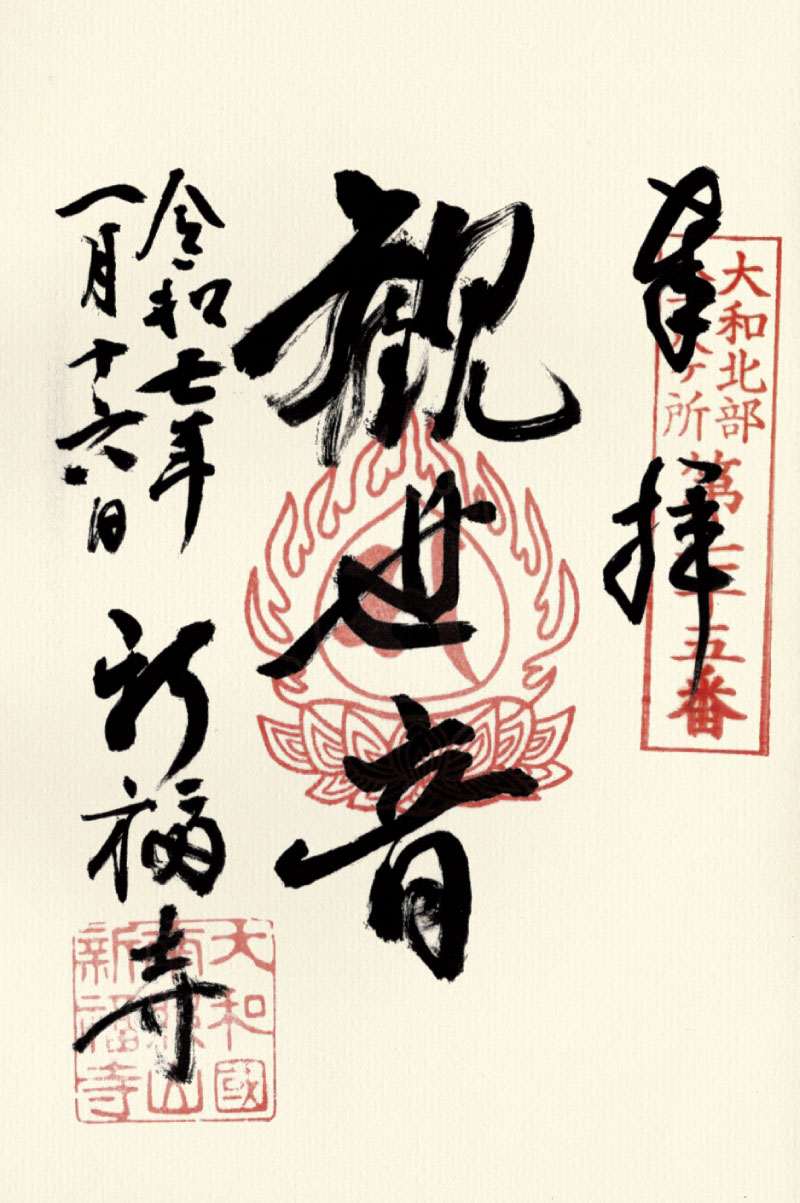 奉拝
大和北部
ヶ所第
五番
観世音
令和七年
一月十六日
新福寺
大和國
山
新福寺